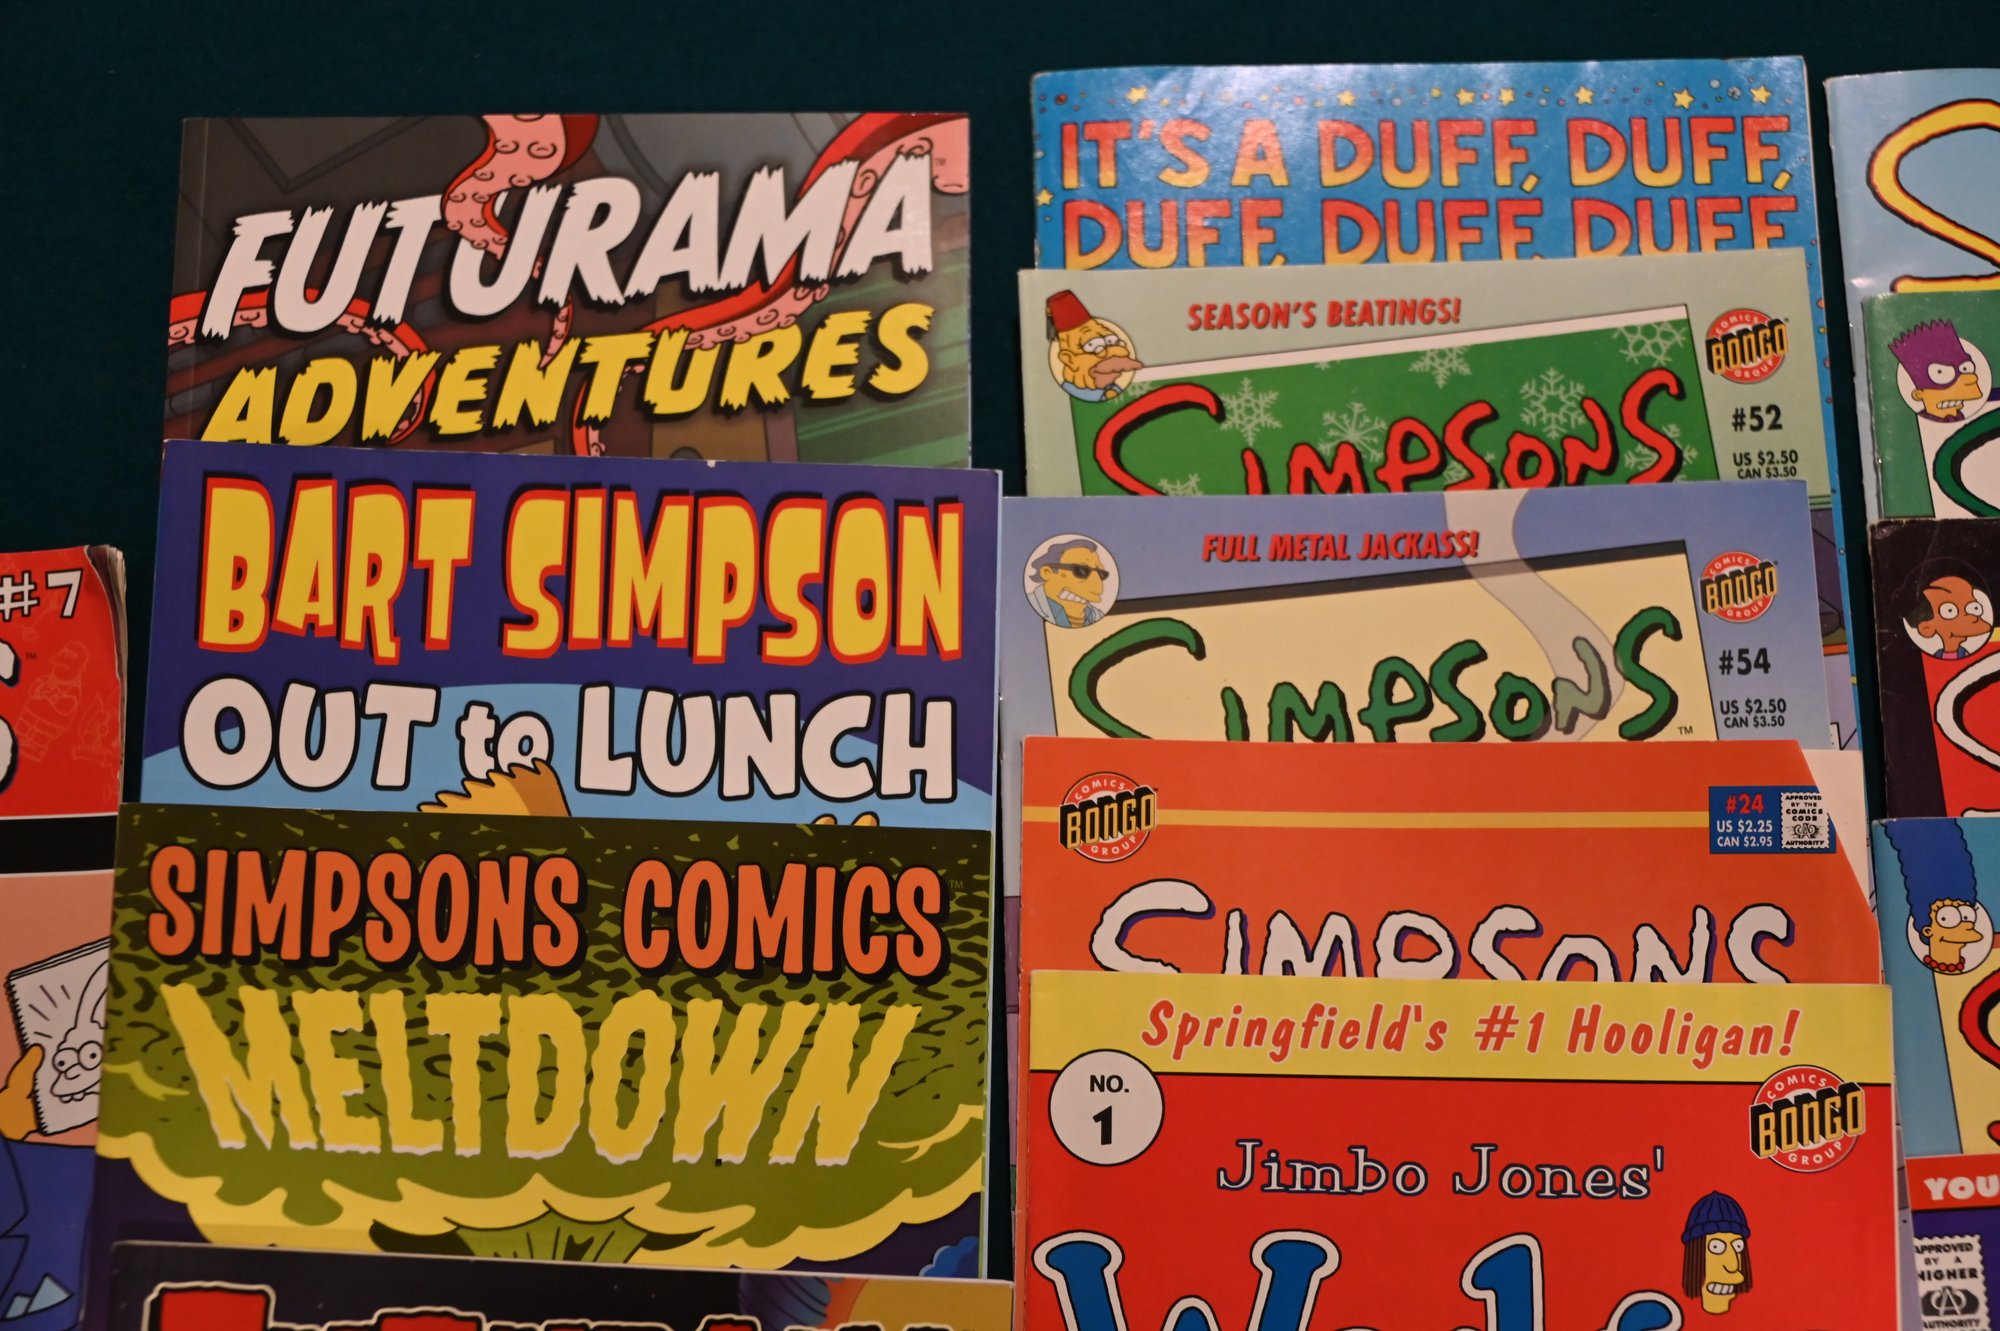 FUTURAMA
ADVENTURES
BART SIMPSON
OUT to LUNCH
SIMPSONS COMICS
MELTDOWN
#7
IT'S A DUFF, DUFF,
DUFF, DUFF, DUFF
SEASON'S BEATINGS!
COMICS
BONGO
GROUP
#52
US $2.50
CAN $3.50
SIMPSONS
FULL METAL JACKASS!
COMICS
BONGO
GROUP
#54
US $2.50
CAN $3.50
SIMPSONS
COMICS
BONGO
GROUP
#24
US $2.25
CAN $2.95
APPROVED
BY THE
COMICS
CODE
CA
AUTHORITY
SIMPSONS
Springfield's #1 Hooligan!
NO.
1
COMICS
BONGO
GROUP
Jimbo Jones'
YOU
APPROVED
BY A
HIGHER
AUTHORITY